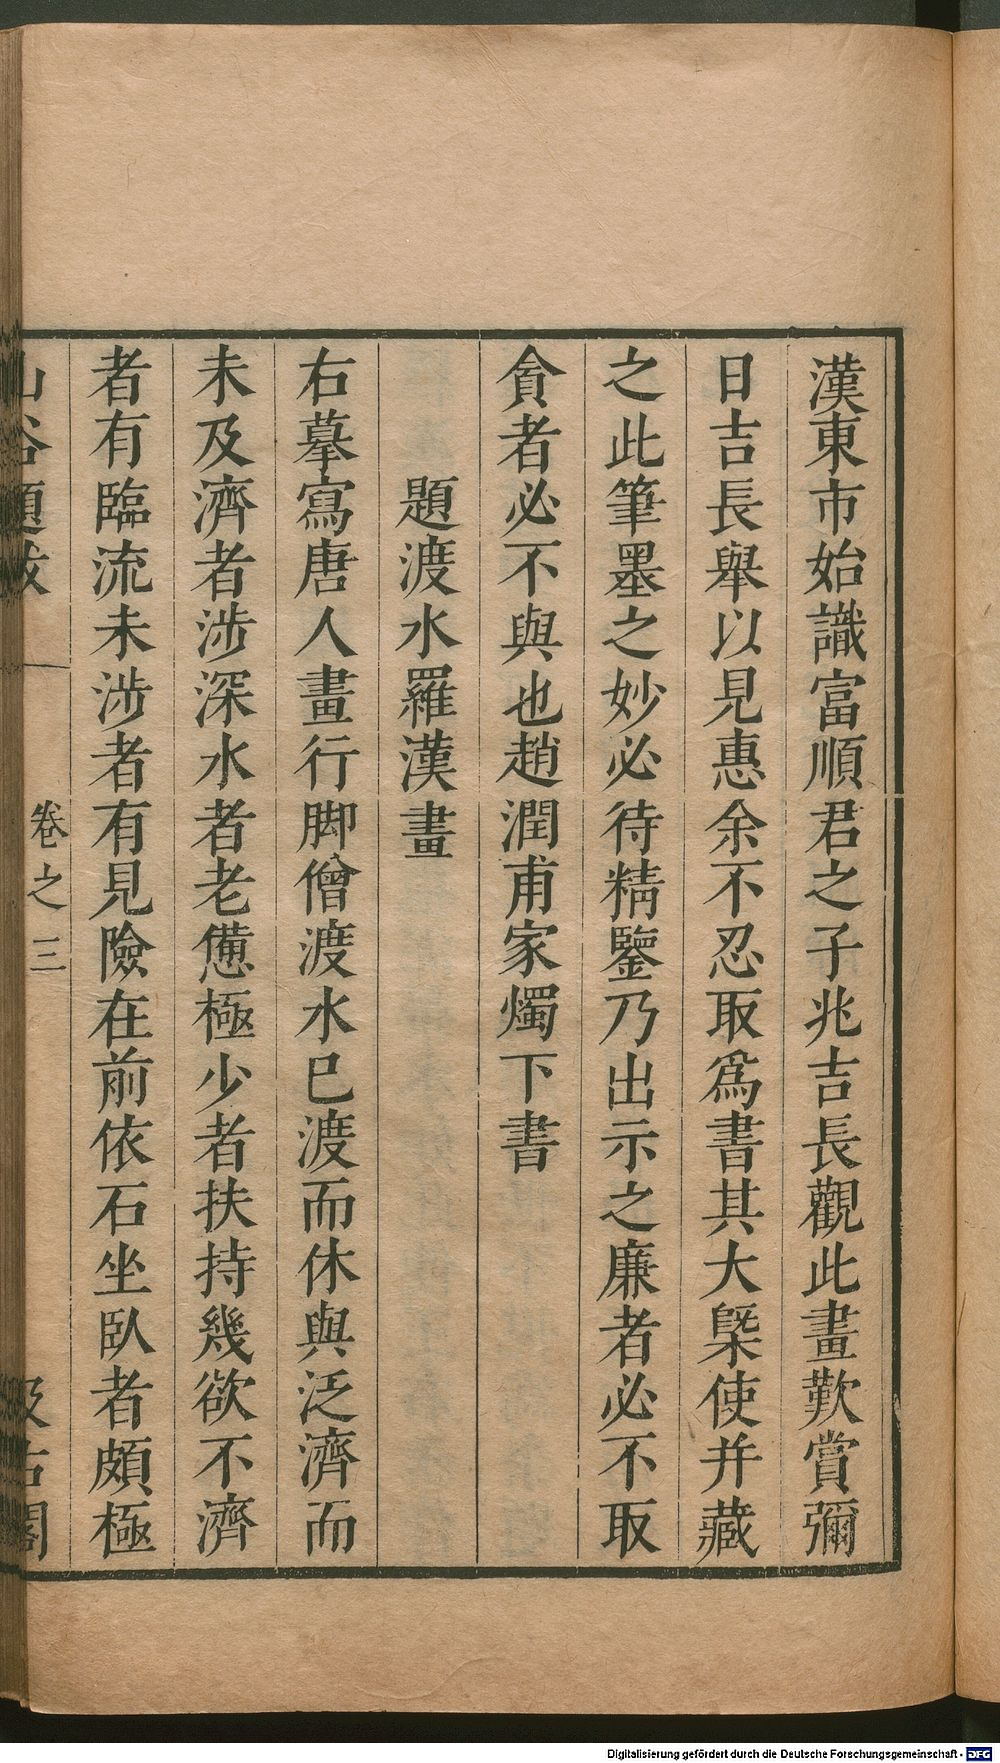 漢東市始識富順君之子兆吉長觀此畫歎賞彌
日吉長舉以見惠余不忍取爲書其大槩使并藏
之此筆墨之妙必待精鑒乃出示之廉者必不取
貪者必不與也趙潤甫家燭下書
題渡水羅漢畫
右摹寫唐人畫行脚僧渡水已渡而休與泛濟而
未及濟者涉深水者老憊極少者扶持幾欲不濟
者有臨流未涉者有見險在前依石坐臥者頗極
山谷題跋 卷之三 汲古閣
Digitalisierung gefördert durch die Deutsche Forschungsgemeinschaft - DFG